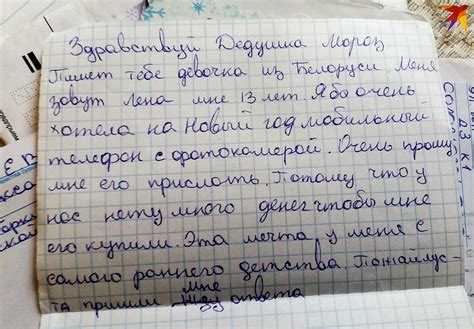 Здравствуй Дедушка Мороз
Пишет тебе девочка из Белоруси. Меня
зовут Лена мне 13 лет. Я бы очень
хотела на Новый год мобильный
телефон с фотокамерой. Очень прошу
мне его прислать. Потому что у
нас нету много денег чтобы мне
его купили. Эта мечта у меня с
самого раннего детства. Пожайлус-
та пришли мне Жду ответа